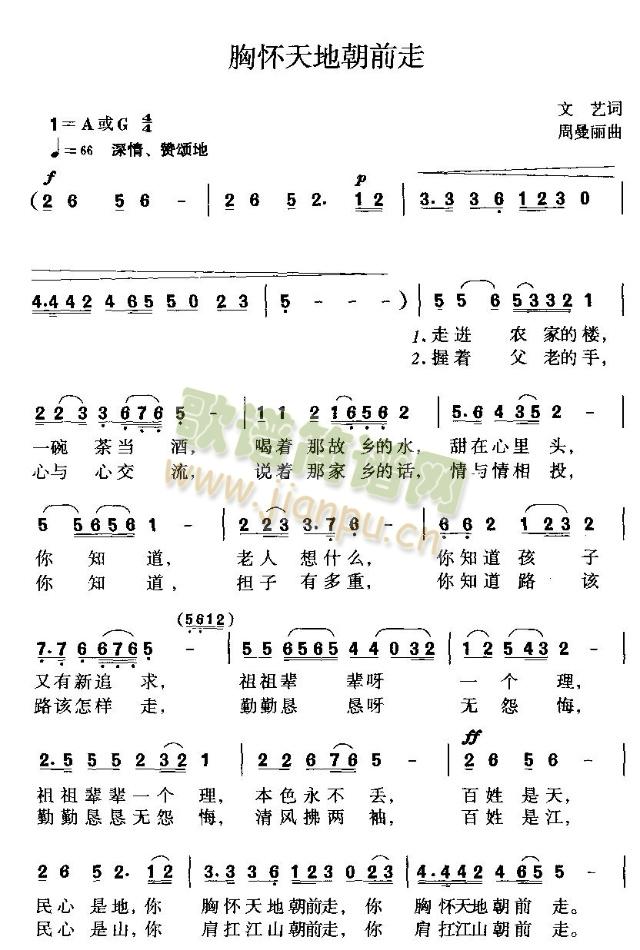 胸怀天地朝前走
1=A或G 4/4
文 艺词
周曼丽曲
♩=66 深情、赞颂地
f p
( 2 6 5 6 - | 2 6 5 2. 1 2 | 3. 3 3 6 1 2 3 0
4. 4 4 2 4 6 5 5 0 2 3 | 5 - - - ) | 5 5 6 5 3 3 2 1 |
1.走进 农 家的楼,
2.握着 父 老的手,
2 2 3 3 6 7 6 5 - | 1 1 2 1 6 5 6 2 | 5. 6 4 3 5 2 - |
一碗 茶当 酒, 喝着 那故 乡的水, 甜在心里 头,
心与 心交 流, 说着 那家 乡的话, 情与情相 投,
歌谱简谱网
www.jianpu.cn
5 5 6 5 6 1 - | 2 2 3 3. 7 6 - | 6 6 2 1 2 2 3 |
你 知 道, 老人 想什么, 你知道孩 子
你 知 道, 担子 有多重, 你知道路 该
(5 6 1 2)
7. 7 6 6 7 6 5 - | 5 5 6 5 6 5 4 4 0 3 2 | 1 2 5 4 3 2 - |
又有新追 求, 祖祖辈 辈呀 一 个 理,
路该怎样 走, 勤勤恳 恳呀 无 怨 悔,
ff
2. 5 5 5 2 3 2 1 | 2 2 6 7 6 5 5 - | 2 6 5 6 - |
祖祖辈辈一个 理, 本色永不 丢, 百姓 是天,
勤勤恳恳无怨 悔, 清风拂两 袖, 百姓 是江,
2 6 5 2. 1 2 | 3. 3 3 6 1 2 3 0 2 3 | 4. 4 4 2 4 6 5 5 - |
民心 是地,你 胸怀天地朝前走, 你 胸怀天地朝前 走。
民心 是山,你 肩扛江山朝前走, 你 肩扛江山朝前 走。